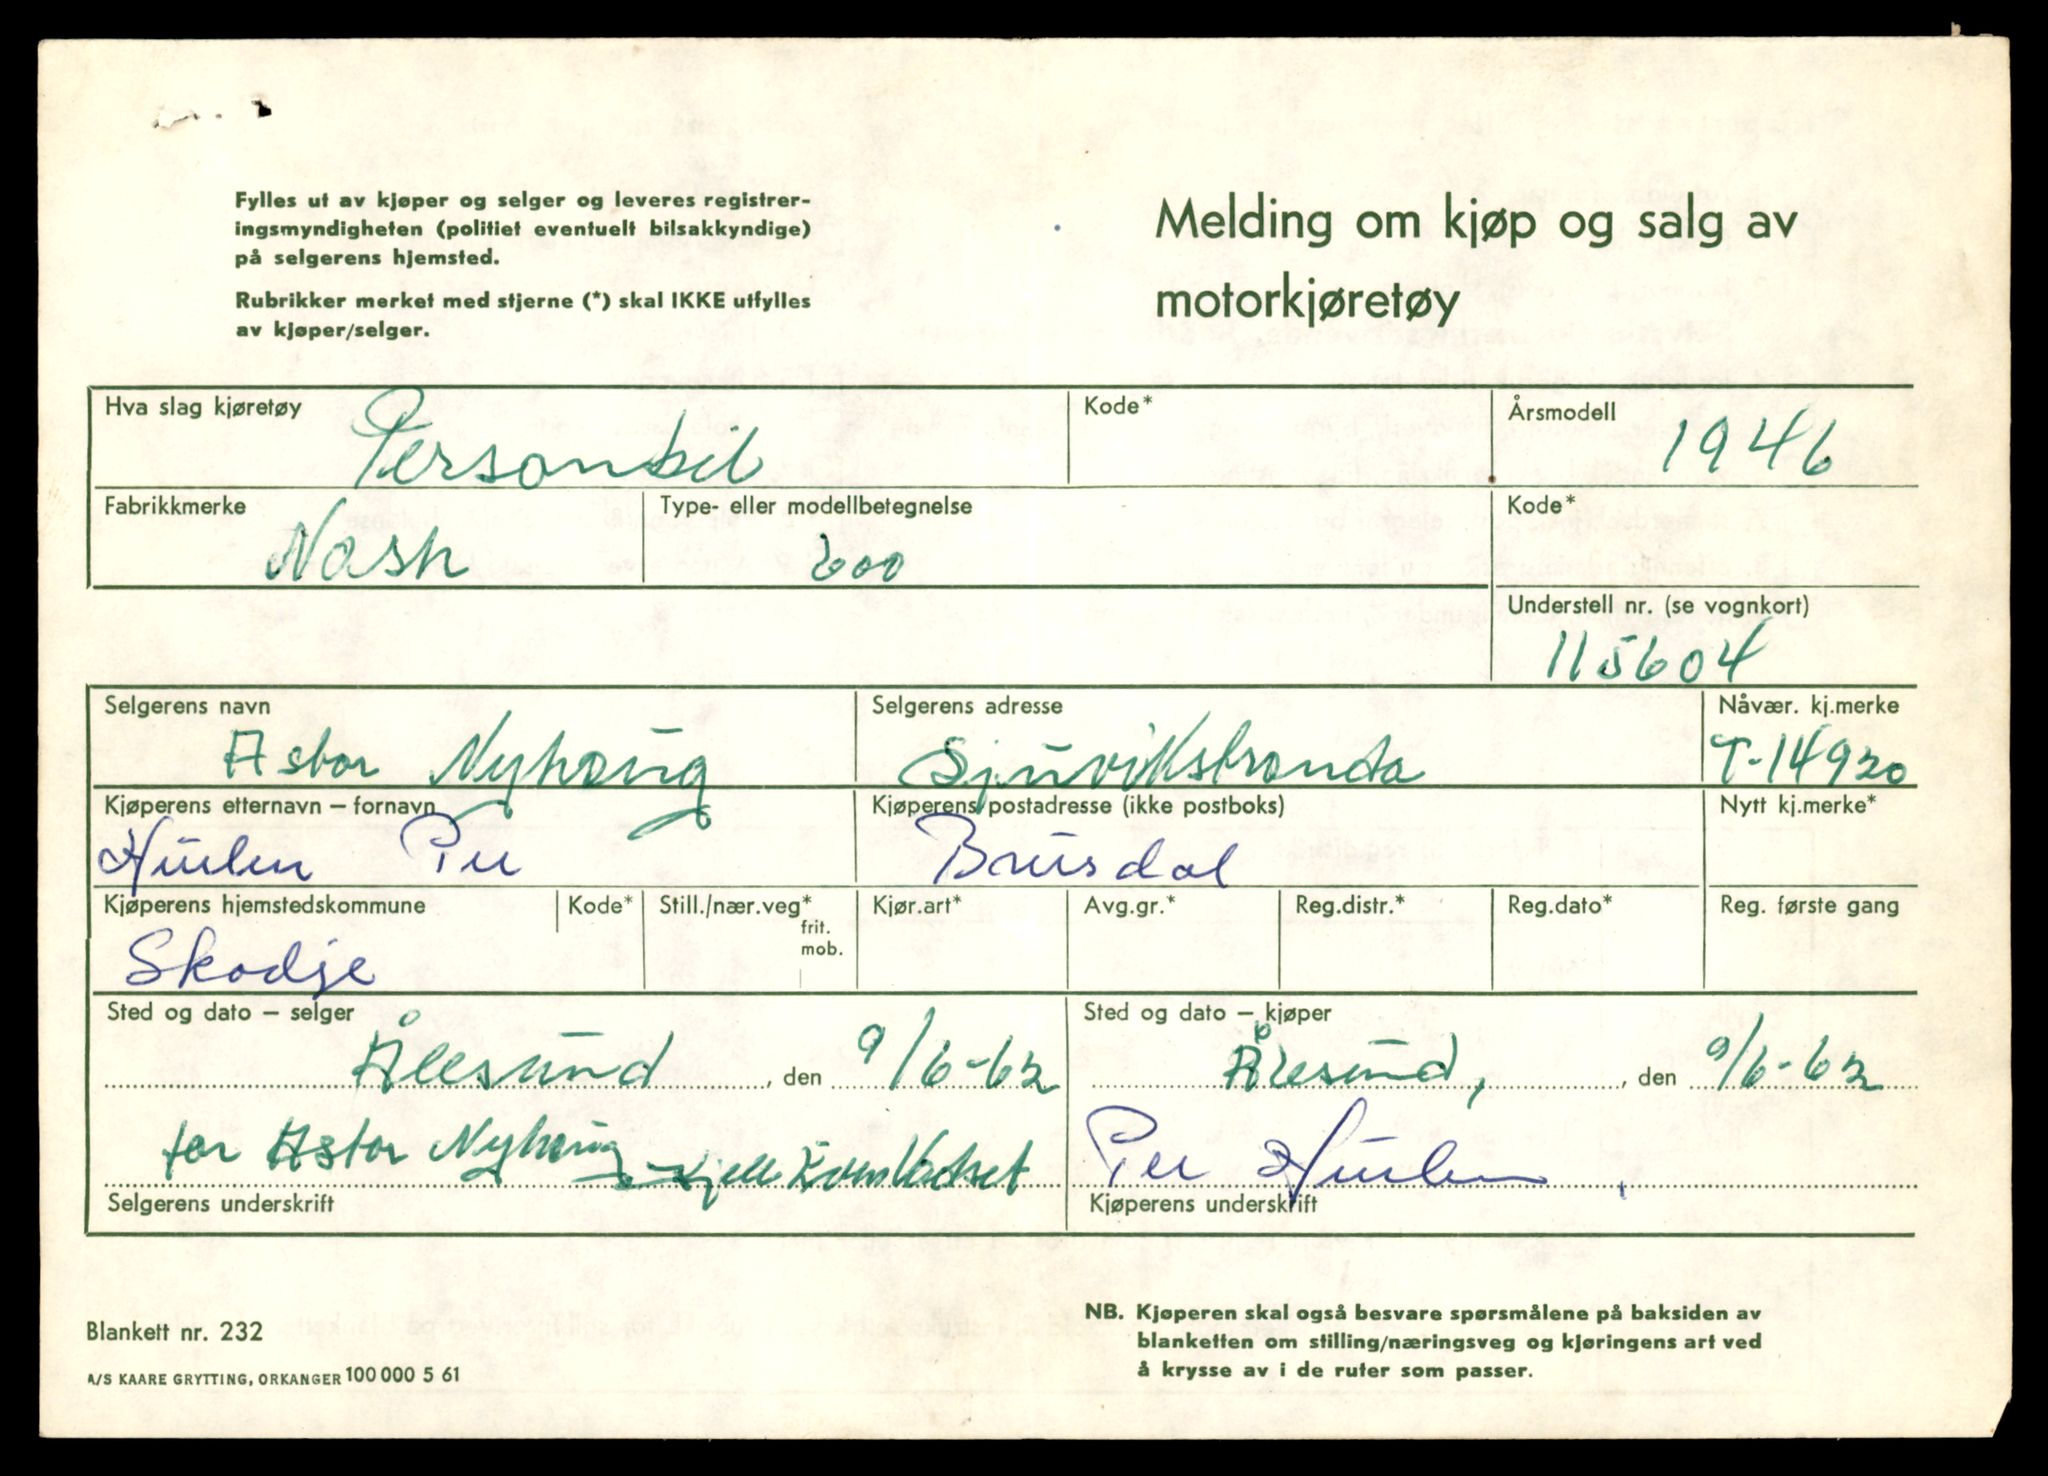 Fylles ut av kjøper og selger og leveres registrer-
ingsmyndigheten (politiet eventuelt bilsakkyndige)
på selgerens hjemsted.
Rubrikker merket med stjerne (*) skal IKKE utfylles
av kjøper/selger.
Melding om kjøp og salg av
motorkjøretøy
Hva slag kjøretøy Personbil Kode* Årsmodell 1946
Fabrikkmerke Nash Type- eller modellbetegnelse 600 Kode*
Understell nr. (se vognkort)
115604
Selgerens navn Selgerens adresse Nåvær. kj.merke
Astor Nyhaug Sjuvikstranda T-14920
Kjøperens etternavn – fornavn Kjøperens postadresse (ikke postboks) Nytt kj.merke*
Hurlen Per Brusdal
Kjøperens hjemstedskommune Kode* Still./nær.veg* frit. mob. Kjør.art* Avg.gr.* Reg.distr.* Reg.dato* Reg. første gang
Skodje
Sted og dato – selger Sted og dato – kjøper
Ålesund, den 9/6-62 Ålesund, den 9/6-62
for Astor Nyhaug Kjell Per Hurlen
Selgerens underskrift Kjøperens underskrift
Blankett nr. 232
A/S KAARE GRYTTING, ORKANGER 100 000 5 61
NB. Kjøperen skal også besvare spørsmålene på baksiden av
blanketten om stilling/næringsveg og kjøringens art ved
å krysse av i de ruter som passer.